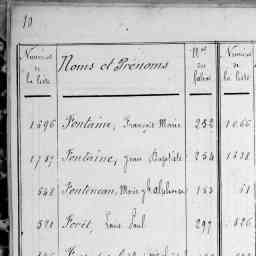 10
Numéros de la liste Noms et Prénoms Nos du Numéros de la liste
1596 Fontaine, François Marie 252 1066
1787 Fontaine, Jean Baptiste 254 1338
548 Fonteneau, Marie Alphonse 51
521 Forêt, Louis Paul 297 826